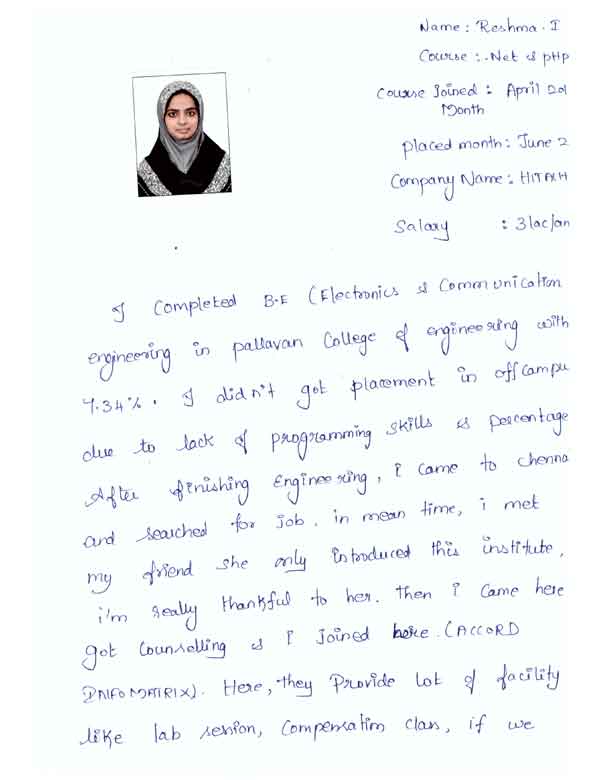 Name : Reshma . I
Course : .Net & PHP
Course Joined : April 201
Month
Placed month : June 2
Company Name : HITECH
Salary : 3 lac/an
I completed B.E (Electronics & Communication
engineering in pallavan College of engineering with
7.34%. I didn't got placement in offcampu
due to lack of programming skills & percentage
After finishing Engineering, i came to chenna
and searched for job. in mean time, i met
my friend she only introduced this institute,
i'm really thankful to her. then i came here
got counselling & I joined here. (ACCORD
INFOMATRIX). Here, they Provide lot of facility
like lab session, compensation class, if we